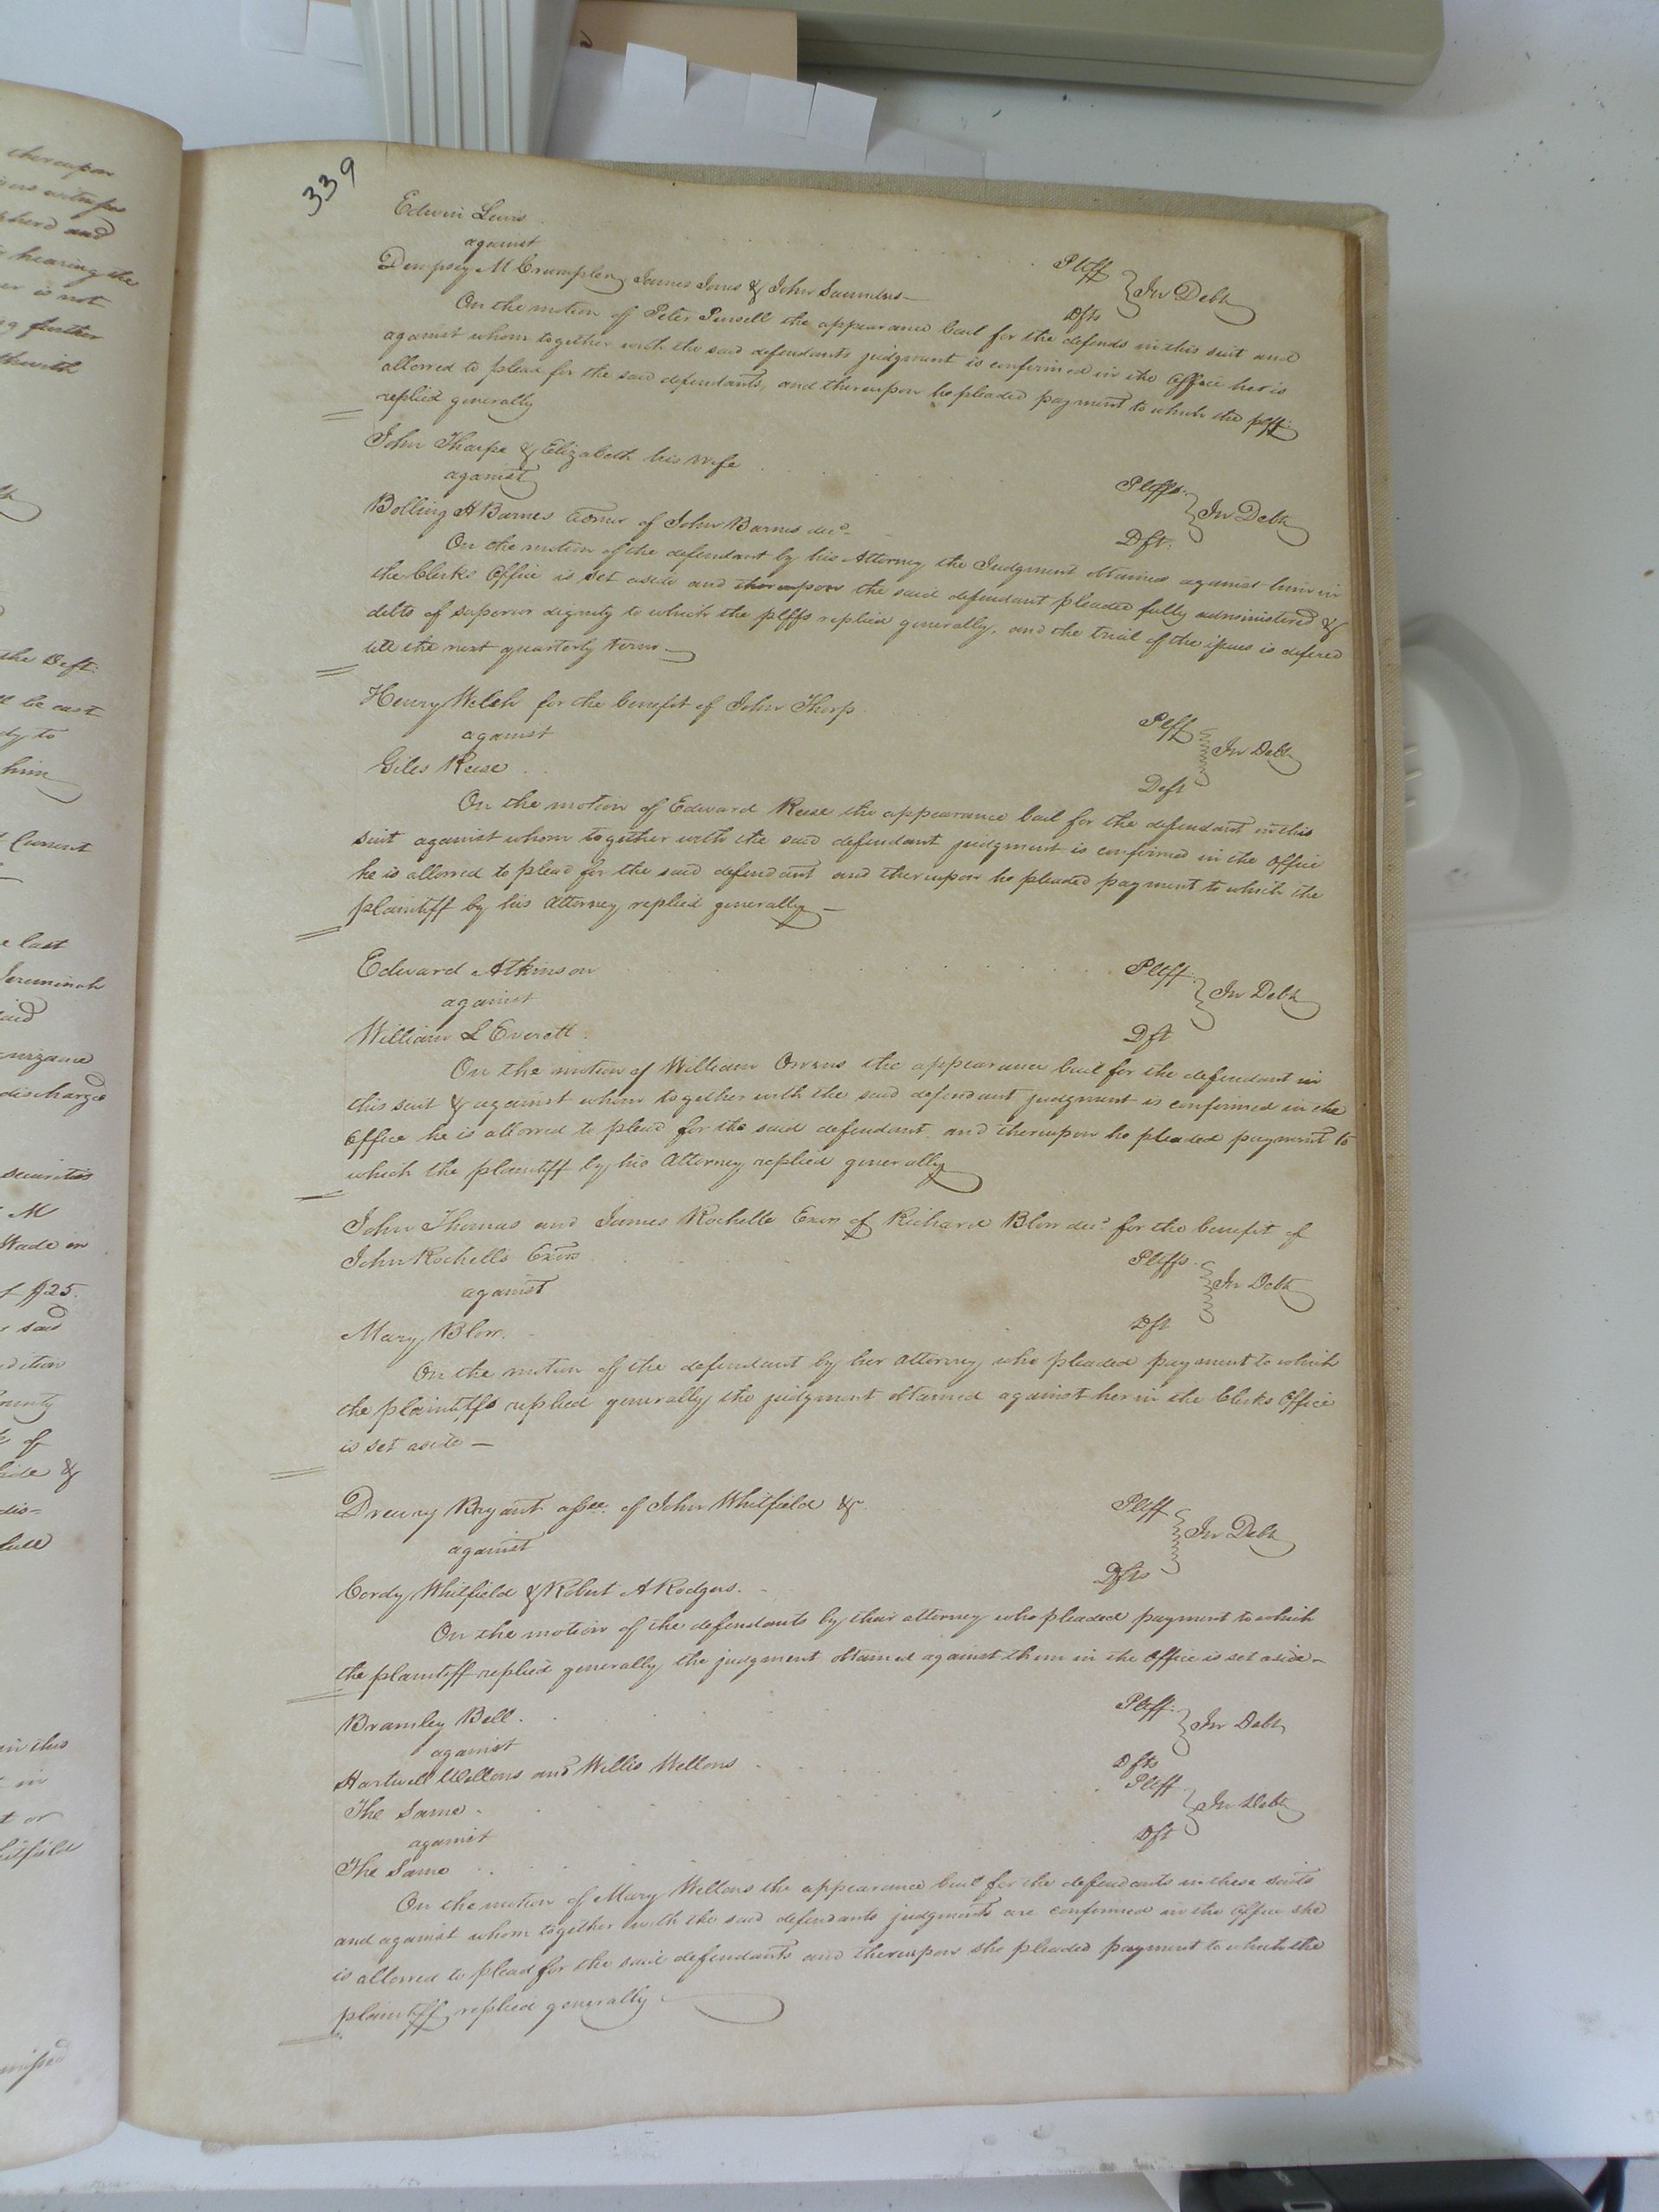 339
Edwin Lewis Pltff
against In Debt
Dempsey M Crumpler, James Jones & John Saunders Dfts
On the motion of Peter Pursell the appearance bail for the defends in this suit and
against whom together with the said defendants judgment is confirmed in the office he is
allowed to plead for the said defendants, and thereupon he pleaded payment to which the plff:
replied generally
John Tharpe & Elizabeth his wife Pltffs.
against In Debt
Bolling H Barnes admr of John Barnes decd Dft.
On the motion of the defendant by his Attorney the Judgment obtained against him in
the Clerks Office is set aside and thereupon the said defendant pleaded fully administered &
debts of superior dignity to which the plffs replied generally, and the trial of the issues is defered
till the next quarterly term
Henry Welsh for the benefit of John Thorp Plff
against In Debt
Giles Reese Deft
On the motion of Edward Reese the appearance bail for the defendant in this
suit against whom together with the said defendant judgment is confirmed in the office
he is allowed to plead for the said defendant and thereupon he pleaded payment to which the
plaintiff by his Attorney replied generally
Edward Atkinson Pltff.
against In Debt
William L Everett Dft
On the motion of William Owens the appearance bail for the defendant in
this suit & against whom together with the said defendant judgment is confirmed in the
Office he is allowed to plead for the said defendant and thereupon he pleaded payment to
which the plaintiff by his Attorney replied generally
John Thomas and James Rochelle Exors of Richard Blow decd for the benefit of
John Rochells Exors Pltffs.
against In Debt
Mary Blow. Dft
On the motion of the defendant by her attorney who pleaded payment to which
the plaintiffs replied generally the judgment obtained against her in the Clerks Office
is set aside
Drewry Bryant assee. of John Whitfield & Pltff
against In Debt
Cordy Whitfield & Robert A Rodgers. Dfts
On the motion of the defendants by their attorney who pleaded payment to which
the plaintiff replied generally the judgment obtained against them in the Office is set aside
Bramley Bell. Pltff.
against In Debt
Hartwell Wellons and Willis Wellons Dfts
The Same. Pltff
against In Debt
The Same Dft
On the motion of Mary Wellons the appearance bail for the defendants in these suits
and against whom together with the said defendants judgments are confirmed in the office she
is allowed to plead for the said defendants and thereupon she pleaded payment to which the
plaintiff replied generally